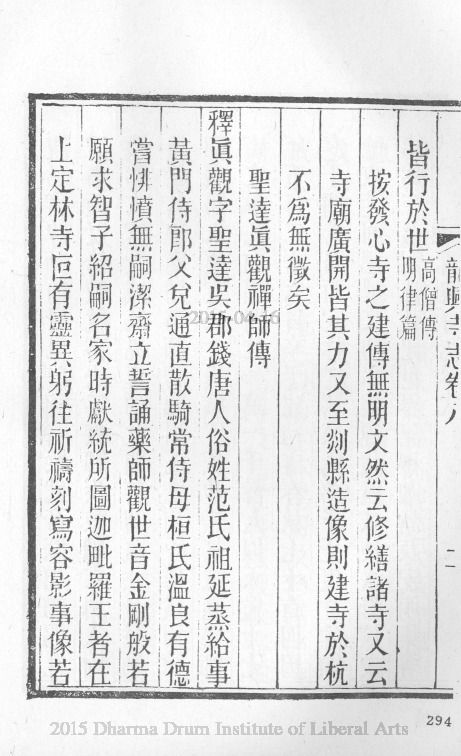 龍興寺志卷八
二
皆行於世高僧傳明律篇
按發心寺之建傳無明文然云修繕諸寺又云
寺廟廣開皆其力又至剡縣造像則建寺於杭
不爲無徵矣
聖達眞觀禪師傳
釋眞觀字聖達吳郡錢唐人俗姓范氏祖延蒸給事
黃門侍郎父兌通直散騎常侍母桓氏溫良有德
嘗悱憤無嗣潔齋立誓誦藥師觀世音金剛般若
願求智子紹嗣名家時獻統所圖迦毗羅王者在
上定林寺巨有靈異躬往祈禱刻寫容影事像若
294
2015 Dharma Drum Institute of Liberal Arts